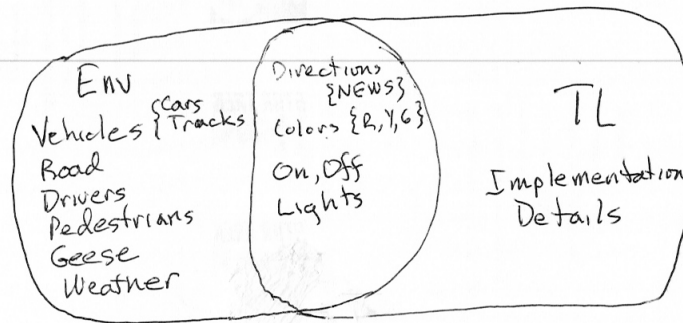 Env
Vehicles { Cars
Trucks
Road
Drivers
Pedestrians
Geese
Weather
Directions
{NEWS}
Colors {R,Y,G}
On, Off
Lights
TL
Implementation
Details